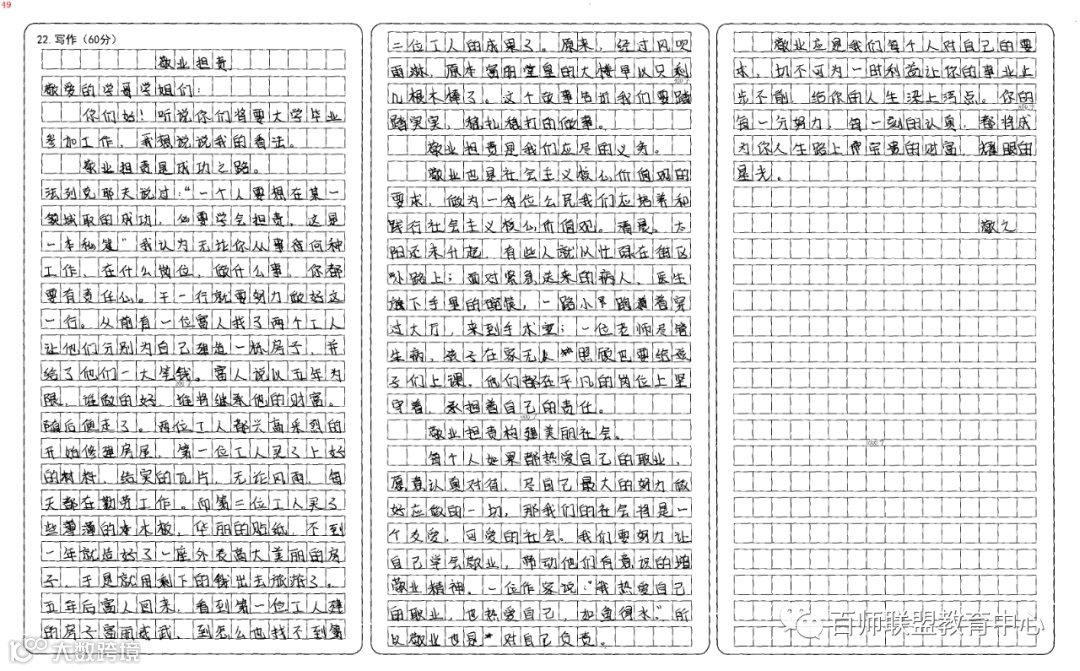 49
22. 写作（60分）
敬业担责
敬爱的学哥学姐们：
你们好！听说你们将要大学毕业
参加工作，我想说说我的看法。
敬业担责是成功之路。
法列克耶夫说过：“一个人要想在某一
领域取的成功，必要学会担责，这是
一本秘笈”我认为无论你从事何种
工作，在什么岗位，做什么事，你都
要有责任心。干一行就要努力做好这
一行。从前有一位富人找了两个工人
让他们分别为自己建造一栋房子，并
给了他们一大笔钱。富人说以五年为
限，谁做的好，谁将继承他的财富。
随后便走了。两位工人都兴高采烈的
开始修建房屋，第一位工人买了上好
的材料，结实的瓦片，无论风雨，每
天都在勤劳工作。而第二位工人买了
些薄薄的木板，华丽的贴纸，不到
一年就造好了一座外表高大美丽的房
子，于是就用剩下的钱出去旅游了。
五年后富人回来，看到第一位工人建
的房子富丽成武，到怎么也找不到第
二位工人的成果了。原来，经过风吹
雨淋，原本富丽堂皇的大楼早以只剩
几根木棒了。这个故事告诉我们要踏
踏实实，稳扎稳打的做事。
敬业担责是我们应尽的义务。
敬业也是社会主义核心价值观的
要求，做为一每位公民我们应培养和
践行社会主义核心价值观。清晨，太
阳还未升起，有些人就以忙碌在街区
小路上；面对紧急送来的病人，医生
放下手里的碗筷，一路小跑着穿
过大厅，来到手术室；一位老师尽管
生病，孩子在家无人照顾也要给孩
子们上课，他们都在平凡的岗位上坚
守着，承担着自己的责任。
敬业担责构建美丽社会。
每个人如果都热爱自己的职业，
愿意认真对待，尽自己最大的努力做
好应做的一切，那我们的社会将是一
个友爱，可爱的社会。我们要努力让
自己学会敬业，带动他们有意识的增
敬业精神，一位作家说：“我热爱自己
的职业，也热爱自己，如鱼得水”所
以敬业也是对自己负责。
敬业应是我们每个人对自己的要
求，切不可为一时利益让你的事业上
步不前，给你的人生染上污点。你的
每一分努力，每一刻的认真，都将成
为你人生路上博宝贵的财富，耀眼的
星光。
敬之
百师联盟教育中心
大数跨境